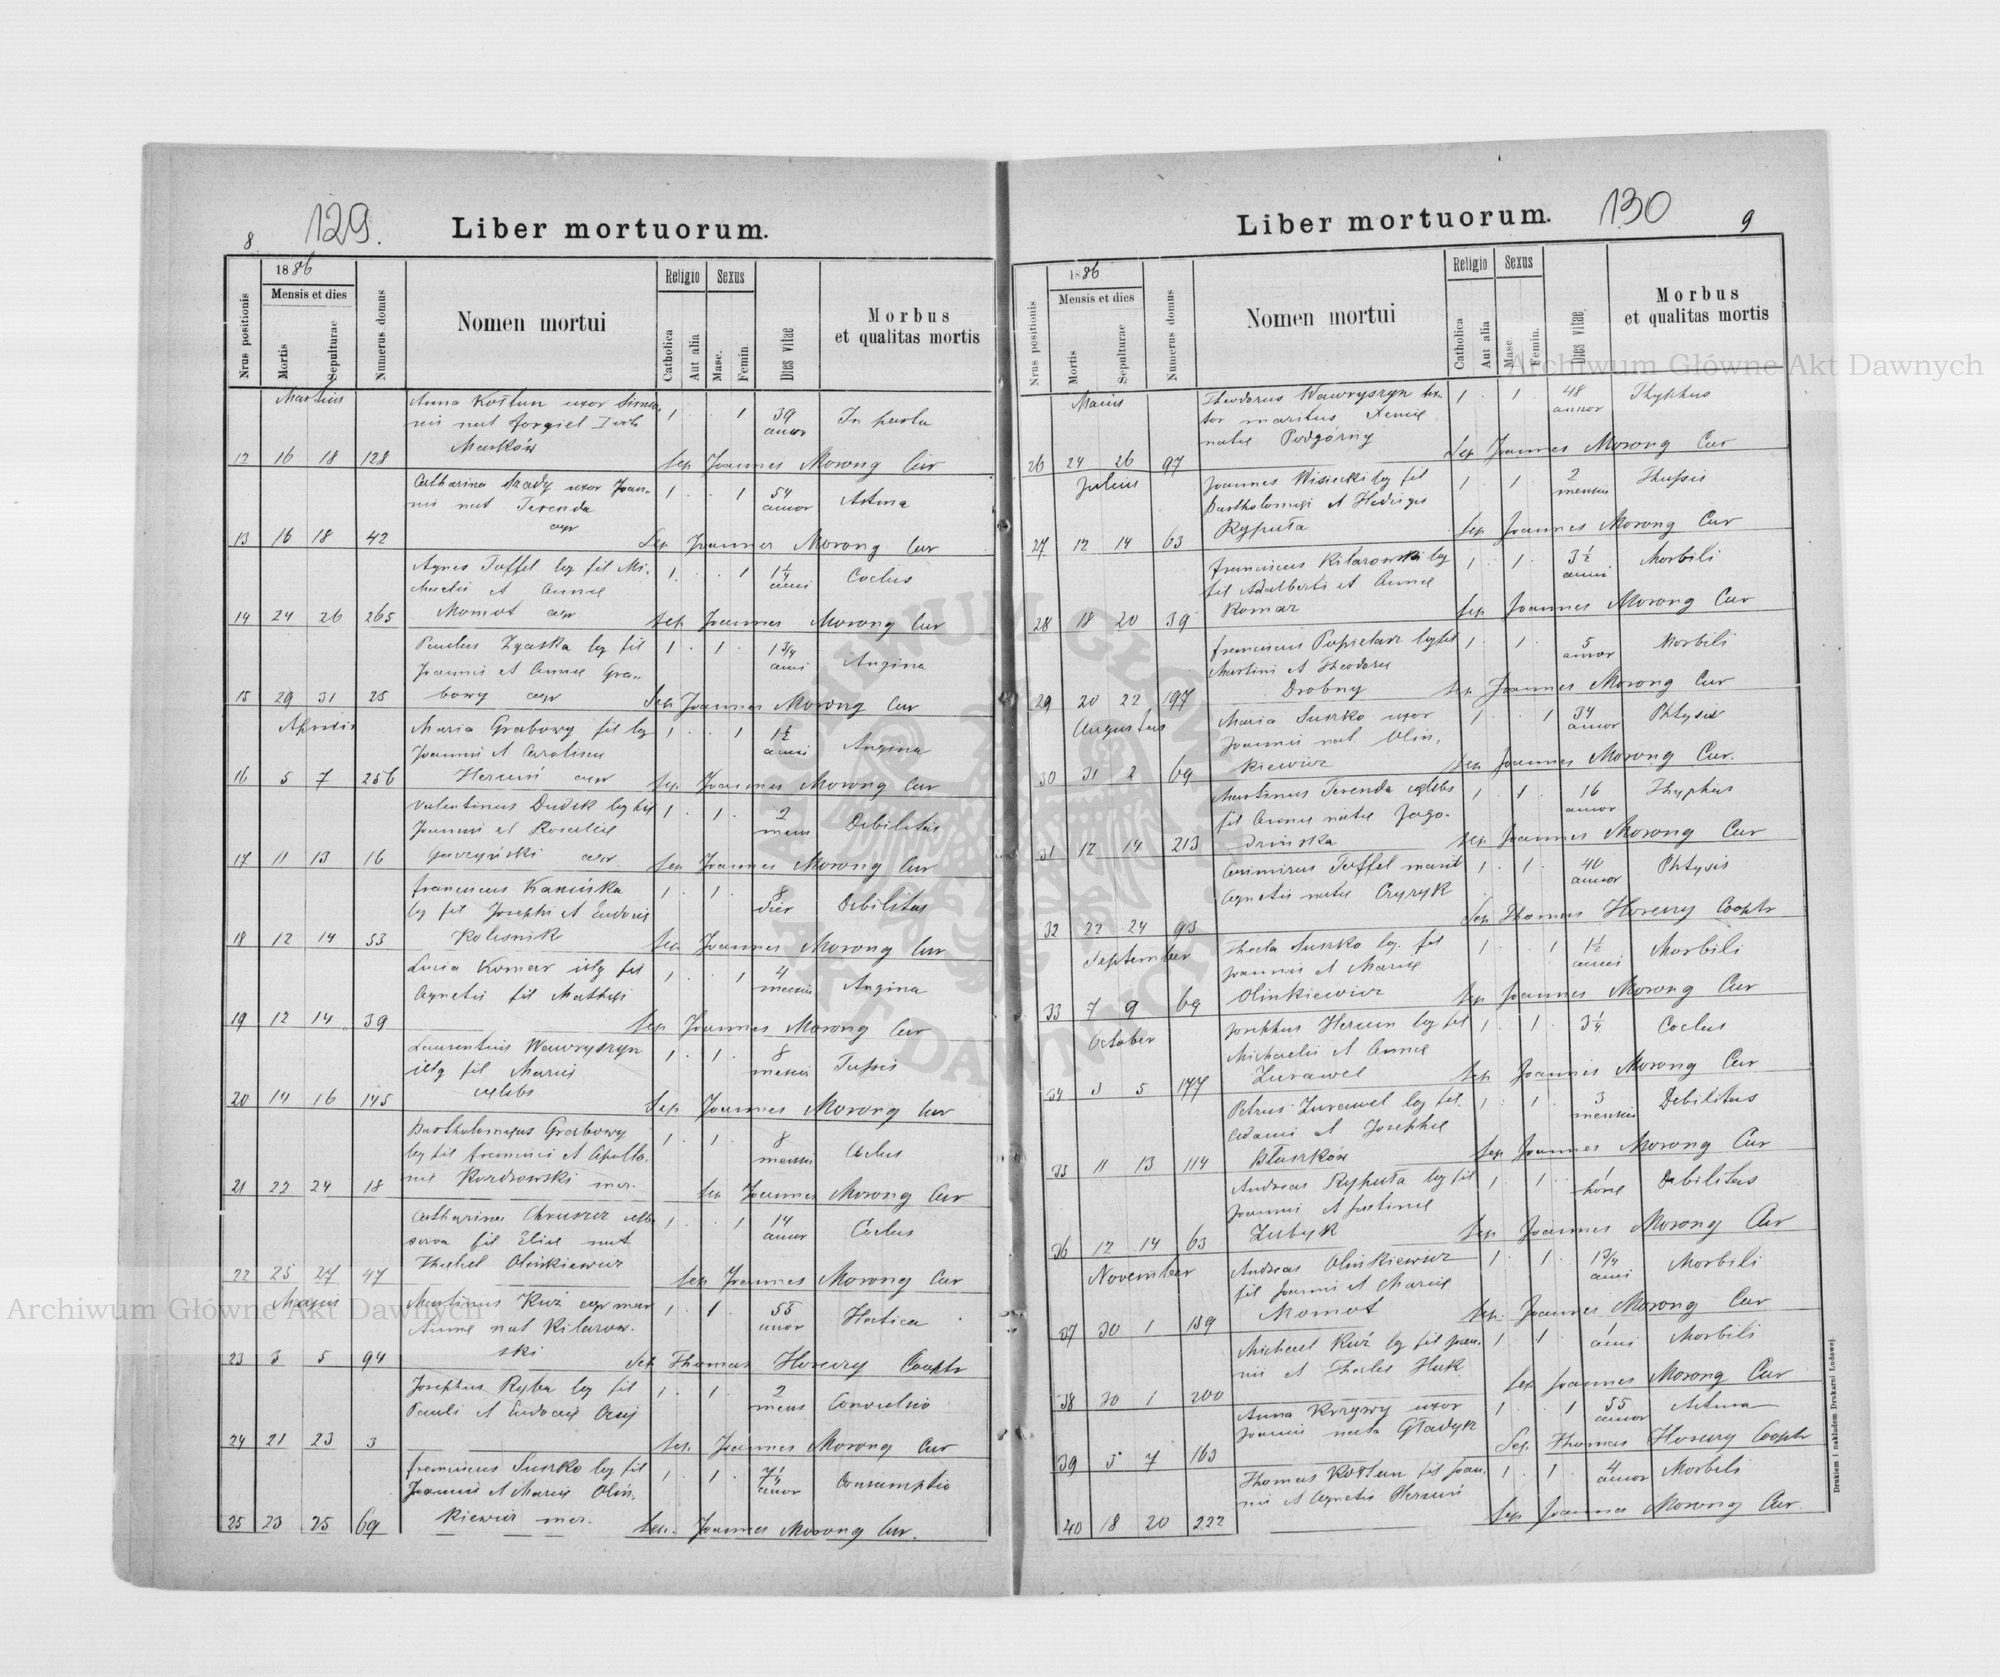 8 129. Liber mortuorum.
Nrus positionis
1886
Mensis et dies
Mortis
Sepulturae
Numerus domus
Nomen mortui
Religio
Catholica
Aut alia
Sexus
Masc.
Femin.
Dies vitae
Morbus
et qualitas mortis
Martius
Anna Kołtun uxor Simeo-
nis nat
Marków
1 1 39 annor In partu
12 16 18 128 Sep Joannes Morong Cur
Catharina uxor Joan-
nis nat Terenda
agr
1 1 54 annor Astma
13 16 18 42 Sep Joannes Morong Cur
Agnes Toffel leg fil Mi-
chaelis et Annae
Momot agr
1 1 1 1/4 anni Coclus
14 24 26 265 Sep Joannes Morong Cur
Paulus Zgaska leg fil
Joannis et Annae Gra-
bowy agr
1 1 1 3/4 anni Angina
15 29 31 25 Sep Joannes Morong Cur
Aprilis
Maria Grabowy fil leg
Joannis et Carolinae
Hercuń agr
1 1 1 1/2 anni Angina
16 5 7 256 Sep Joannes Morong Cur
Valentinus Dudek leg fil
Joannis et Rosaliae
agr
1 1 2 mens Debilitas
17 11 13 16 Sep Joannes Morong Cur
Franciscus Kanińska
leg fil Josephi et Eudoxiae
Kolesnik
1 1 8 dier Debilitas
18 12 14 53 Sep Joannes Morong Cur
Lucia Komar illg fil
Agnetis fil Mathaei
1 1 4 mensis Angina
19 12 14 39 Sep Joannes Morong Cur
Laurentius Wawryszyn
illg fil Mariae
caelebs
1 1 8 mensis Tussis
20 14 16 145 Sep Joannes Morong Cur
Bartholomaeus Grabowy
leg fil Francisci et Apollo-
niae Kozdrowski mer.
1 1 8 mensis Coclus
21 22 24 18 Sep Joannes Morong Cur
Catharina Chruszcz
serva fil Eliae nat
Olinkiewicz
1 1 14 annor Coclus
22 25 27 47 Sep Joannes Morong Cur
Majus
Martinus Kuź agr mar
Annae nat Kitarow-
ski
1 1 55 annor Hectica
23 3 5 94 Sep Thomas Horeczy Cooptr
Josephus Ryba leg fil
Pauli et Eudoxiae
1 1 2 mens Convulsio
24 21 23 3 Sep. Joannes Morong Cur
Franciscus Suszko leg fil
Joannis et Mariae Oliń-
kiewicz mer.
1 1 annor Consumptio
25 23 25 69 Sep. Joannes Morong Cur.
Liber mortuorum. 130 9
Nrus positionis
1886
Mensis et dies
Mortis
Sepulturae
Numerus domus
Nomen mortui
Religio
Catholica
Aut alia
Sexus
Masc.
Femin.
Dies vitae
Morbus
et qualitas mortis
Maius
Theodorus Wawryszyn tex-
tor maritus Xeniae
natae Podgórny
1 1 48 annor Thyphus
26 24 26 97 Sep Joannes Morong Cur
Julius
Joannes Wisiecki leg fil
Bartholomaei et Hedvigis
Ryputa
1 1 2 mensis Thussis
27 12 14 63 Sep Joannes Morong Cur
Franciscus Kitarowski leg
fil Adalberti et Annae
Komar
1 1 3 1/2 anni Morbili
28 18 20 39 Sep Joannes Morong Cur
Franciscus Popielarz leg fil
Martini et Theodorae
Drobny
1 1 5 annor Morbili
29 20 22 197 Sep Joannes Morong Cur
Augustus
Maria Suszko uxor
Joannis nat. Olin-
kiewicz
1 1 34 annor Phtysis
30 31 2 69 Sep Joannes Morong Cur.
Martinus Terenda caelebs
fil Annae natae Jago-
dzińska
1 1 16 annor Thyphus
31 12 14 213 Sep Joannes Morong Cur
Casimirus Toffel marit
Agnetis natae Cryzyk
1 1 40 annor Phtysis
32 22 24 93 Sep Thomas Horeczy Cooptr
September
Thecla Suszko leg. fil
Joannis et Mariae
Olinkiewicz
1 1 1 1/2 anni Morbili
33 7 9 69 Sep Joannes Morong Cur
October
Josephus Hercun leg fil
Michaelis et Annae
Zurawel
1 1 3 1/4 Coclus
34 3 5 177 Sep Joannes Morong Cur
Petrus Zurawel leg fil.
Adami et Josephae
Błaszków
1 1 3 mensis Debilitas
35 11 13 114 Sep Joannes Morong Cur
Andreas Ryputa leg fil
Joannis et Justinae
Zubyk
1 1 1 horae Debilitas
36 12 14 63 Sep Joannes Morong Cur
November
Andreas Olinkiewicz
fil Joannis et Mariae
Momot
1 1 1 3/4 anni Morbili
37 30 1 189 Sep. Joannes Morong Cur
Michael Kuź leg fil Joan-
nis et Theclae Huk
1 1 1 anni Morbili
38 30 1 200 Sep Joannes Morong Cur
Anna Krzywy uxor
Joannis nata Gładyk
1 1 55 annor Astma
39 5 7 163 Sep. Thomas Horeczy Cooptr
Thomas Kołtun fil Joan-
nis et Agnetis Hercuń
1 1 4 annor Morbili
40 18 20 222 Sep Joannes Morong Cur.
Drukiem i nakładem Drukarni Ludowej.
Archiwum Główne Akt Dawnych
Archiwum Główne Akt Dawnych
ARCHIWUM GŁÓWNE AKT DAWNYCH